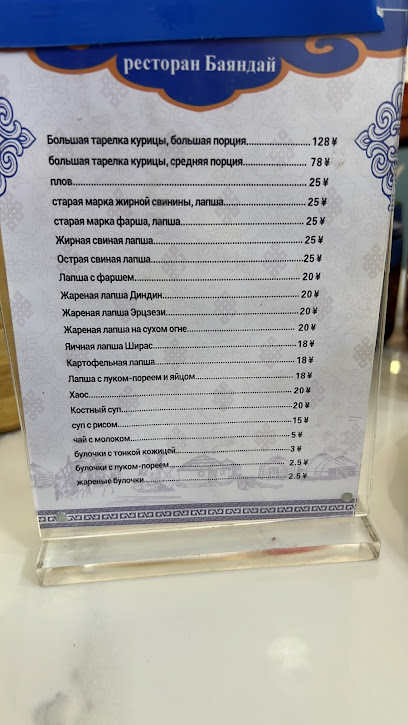 ресторан Баяндай
Большая тарелка курицы, большая порция........................128 ¥
большая тарелка курицы, средняя порция........................ 78 ¥
плов........................25 ¥
старая марка жирной свинины, лапша........................25 ¥
старая марка фарша, лапша........................25 ¥
Жирная свиная лапша........................25 ¥
Острая свиная лапша........................25 ¥
Лапша с фаршем........................20 ¥
Жареная лапша Диндин........................20 ¥
Жареная лапша Эрцзези........................20 ¥
Жареная лапша на сухом огне........................20 ¥
Яичная лапша Ширас........................18 ¥
Картофельная лапша........................18 ¥
Лапша с луком-пореем и яйцом........................18 ¥
Хаос........................20 ¥
Костный суп........................20 ¥
суп с рисом........................15 ¥
чай с молоком........................5 ¥
булочки с тонкой кожицей........................3 ¥
булочки с луком-пореем........................2.5 ¥
жареные булочки........................2.5 ¥